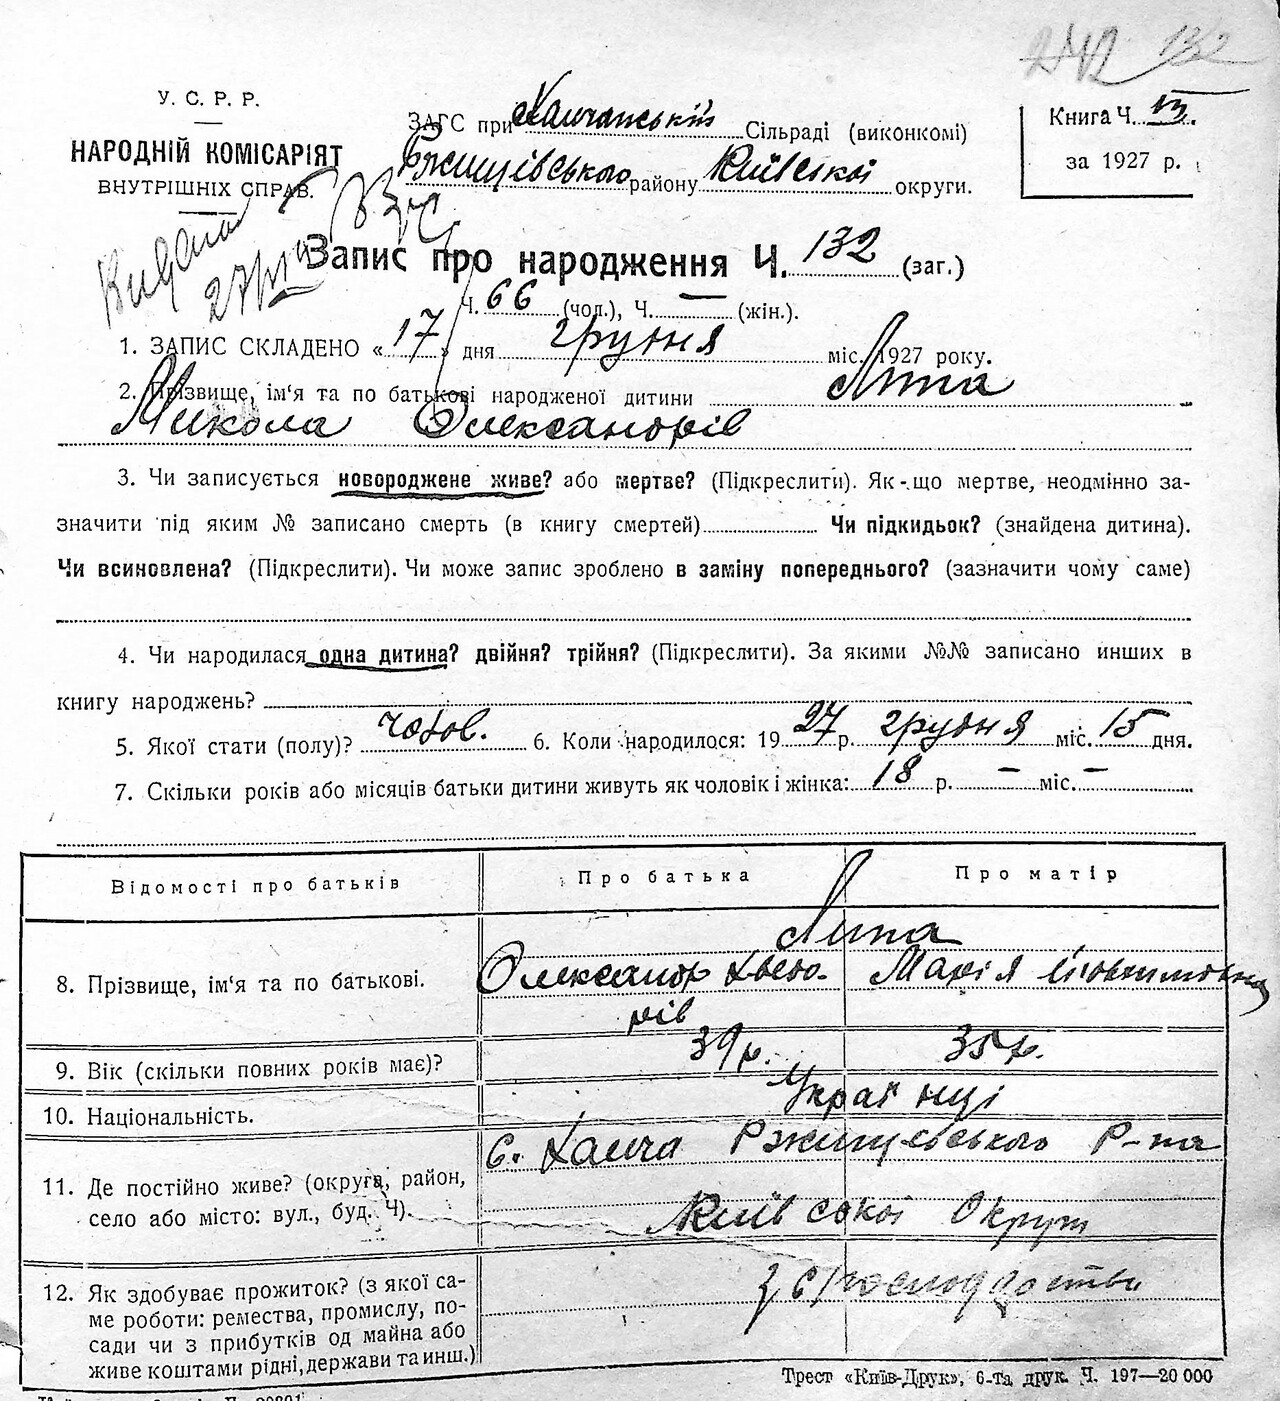 242 132
У. С. Р. Р.
НАРОДНІЙ КОМІСАРІЯТ
ВНУТРІШНІХ СПРАВ.
ЗАГС при Ханчанській Сільраді (виконкомі)
Ржищівського району Київської округи.
Книга Ч.
за 1927 р.
Запис про народження Ч. 132 (заг.)
Ч. 66 (чол.), Ч. — (жін.).
1. ЗАПИС СКЛАДЕНО «17» дня грудня міс. 1927 року.
2. Прізвище, ім'я та по батькові народженої дитини Липа
Микола Олександрів
3. Чи записується новороджене живе? або мертве? (Підкреслити). Як-що мертве, неодмінно за-
значити під яким № записано смерть (в книгу смертей) Чи підкидьок? (знайдена дитина).
Чи всиновлена? (Підкреслити). Чи може запис зроблено в заміну попереднього? (зазначити чому саме)
4. Чи народилася одна дитина? двійня? трійня? (Підкреслити). За якими №№ записано инших в
книгу народжень?
5. Якої стати (полу)? чолов. 6. Коли народилося: 1927 р. грудня міс. 15 дня.
7. Скільки років або місяців батьки дитини живуть як чоловік і жінка: 18 р. — міс. —
Відомості про батьків Про батька Про матір
Липа
8. Прізвище, ім'я та по батькові. Олександр Хведо- Марія
рів
9. Вік (скільки повних років має)? 39 р. 35 р.
10. Національність. Українці
11. Де постійно живе? (округа, район,
село або місто: вул., буд. Ч).
с. Ханча Ржищевського Р-на
Київської Округи
12. Як здобуває прожиток? (з якої са-
ме роботи: ремества, промислу, по-
сади чи з прибутків од майна або
живе коштами рідні, держави та инш.)
з с/господарства
Трест «Київ-Друк», 6-та друк. Ч. 197—20 000